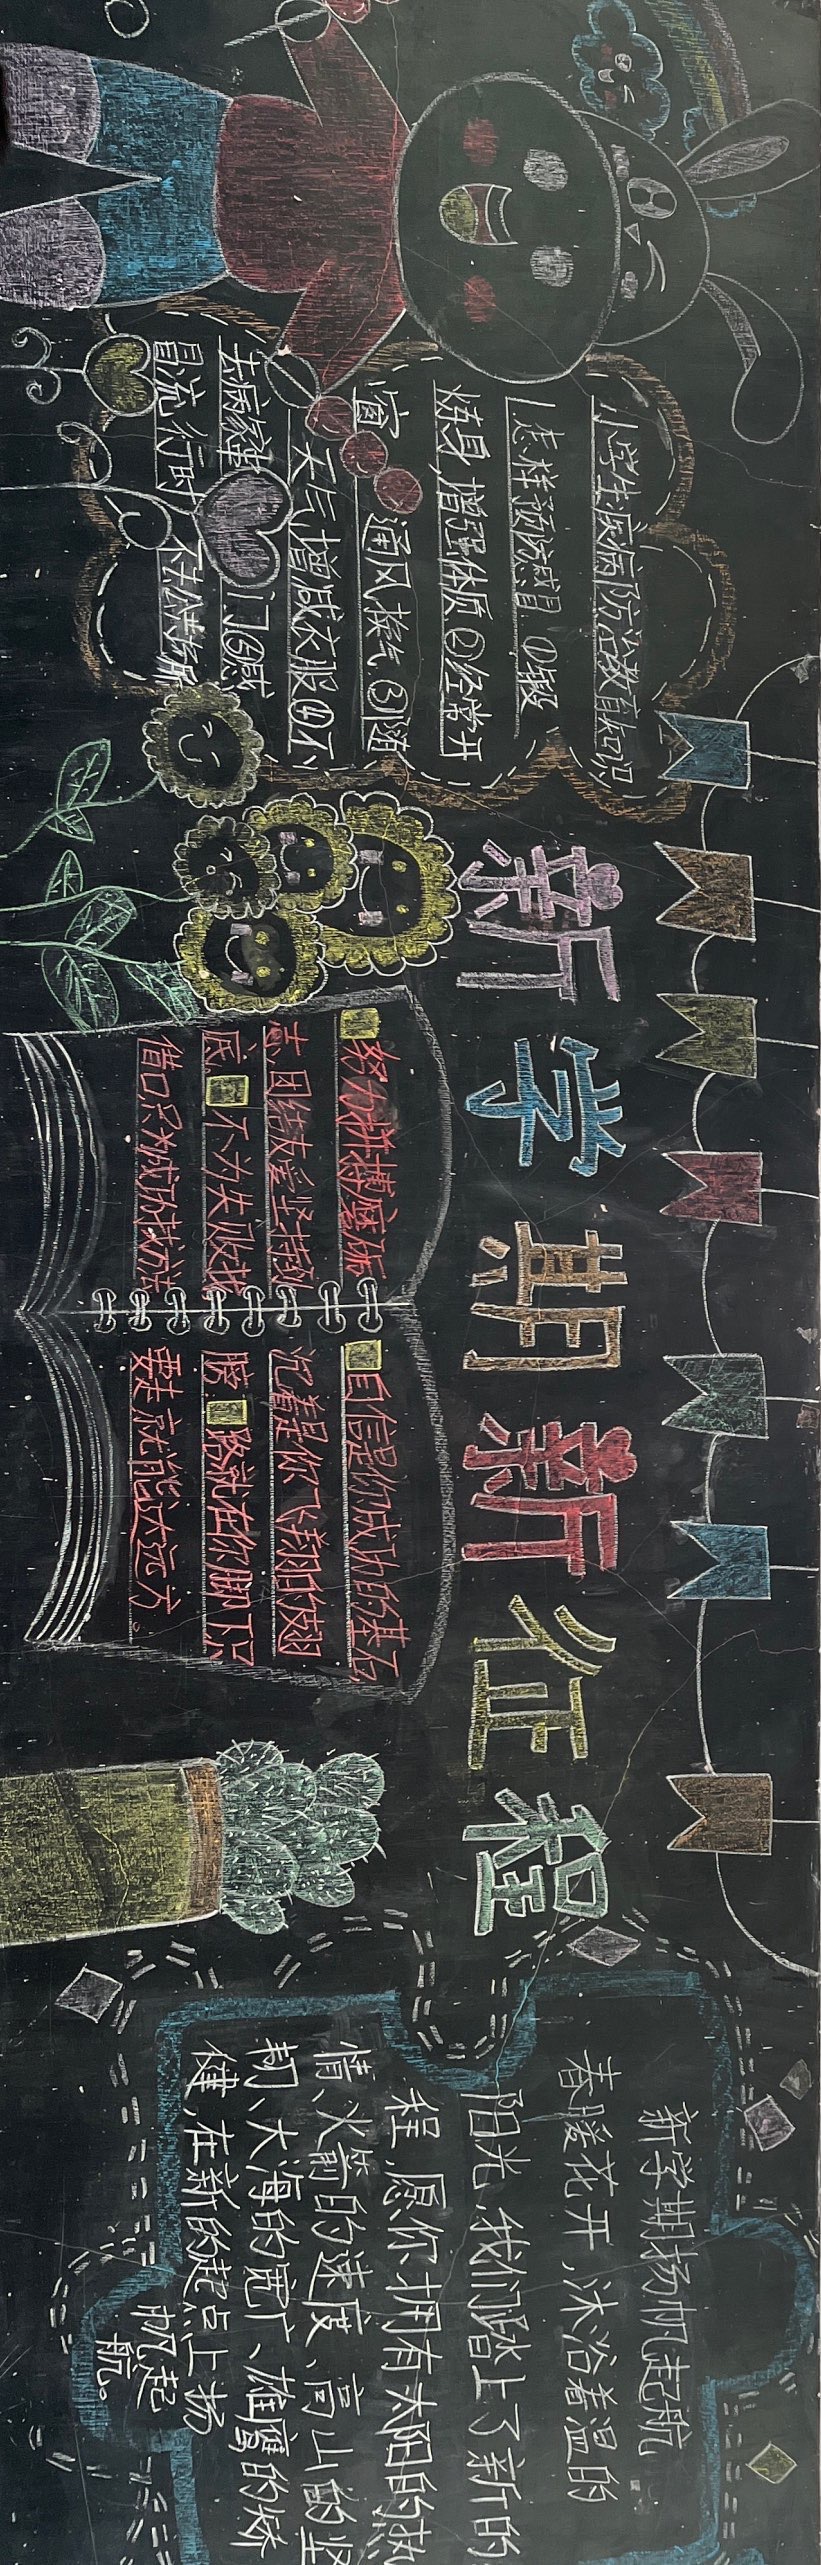 新学期新征程
小学生疾病防治教育知识
1怎样预防感冒 ①锻
炼身,增强体质②经常开
窗 通风换气③随
天气增减衣服④不
去病 门⑤感
冒流行时 不去公共场所
努力拼搏磨练
志团结友爱坚持到
底 不为失败找
借口只为成功找方法
自信是你成功的基石
沉着是你飞翔的翅
膀 路就在你脚下只
要走就能达远方。
新学期扬帆起航
春暖花开,沐浴着温的
阳光,我们踏上了新的
程,愿你拥有太阳的热
情、火箭的速度、高山的坚
韧、大海的宽广、雄鹰的矫
健,在新的起点上扬
帆起
航。